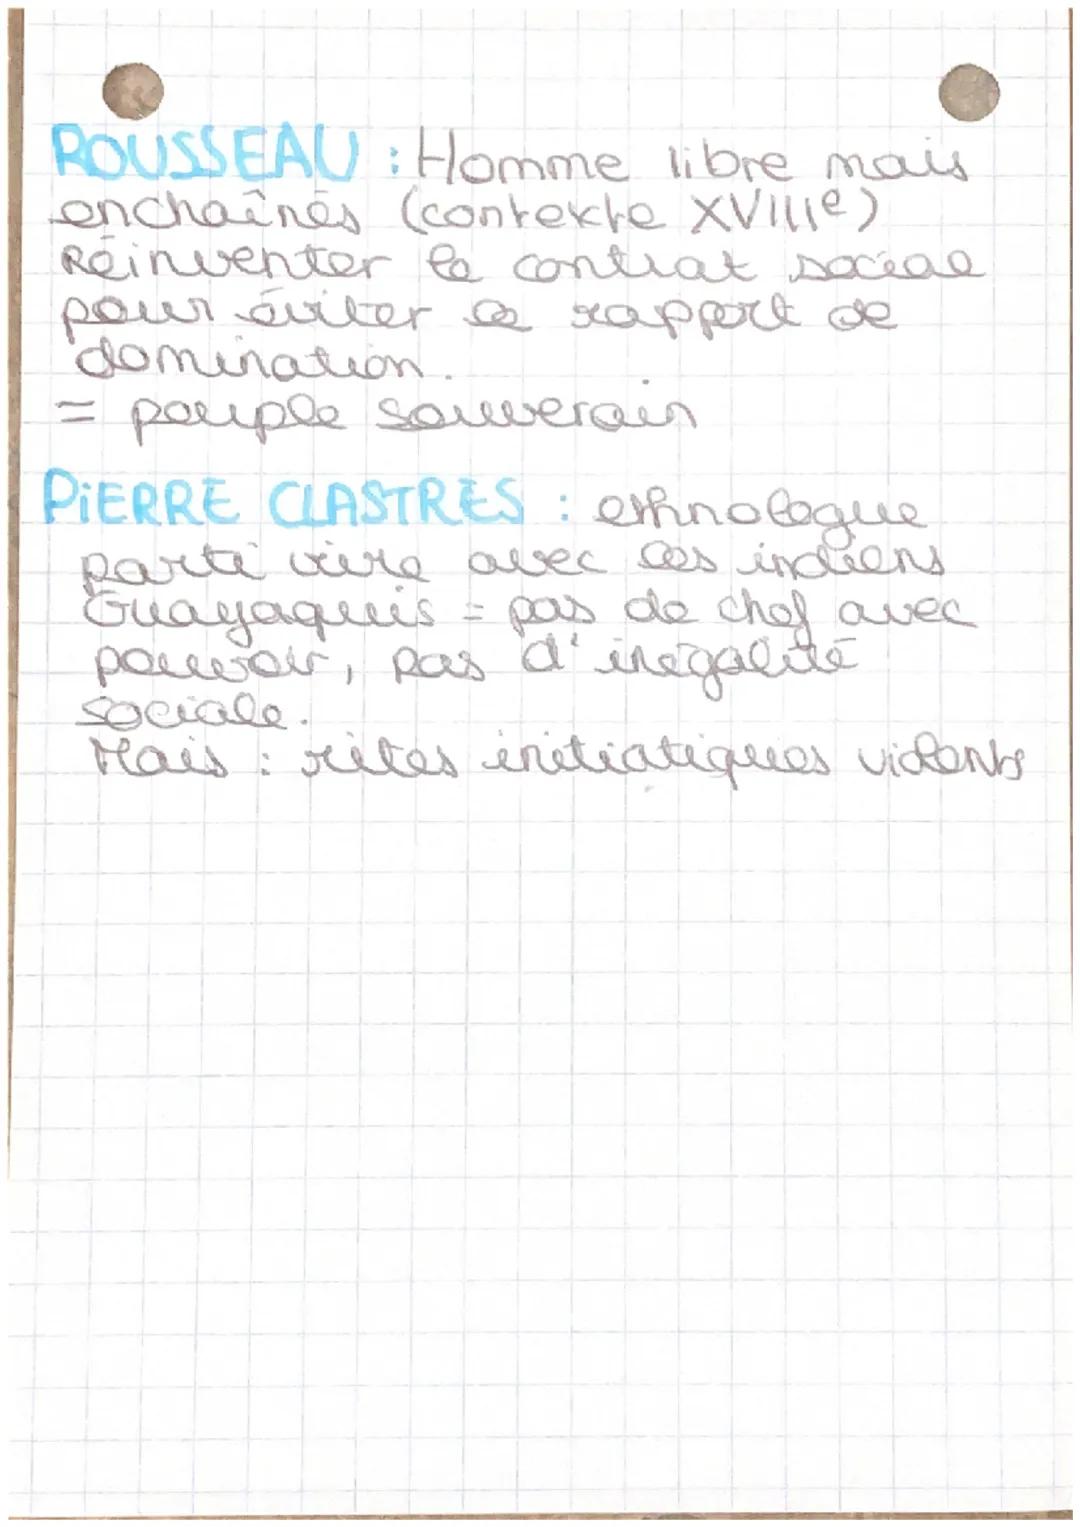 ROUSSEAU : Homme libre mais
enchaînés (contexte XVIIIe)
Réinventer le contrat social
pour éviter le rapport de
domination.
= peuple souverain
PIERRE CLASTRES : ethnologue
parti vivre avec les indiens
Guayaquis = pas de chef avec
pouvoir, pas d'inégalité
sociale.
Mais : rites initiatiques violents